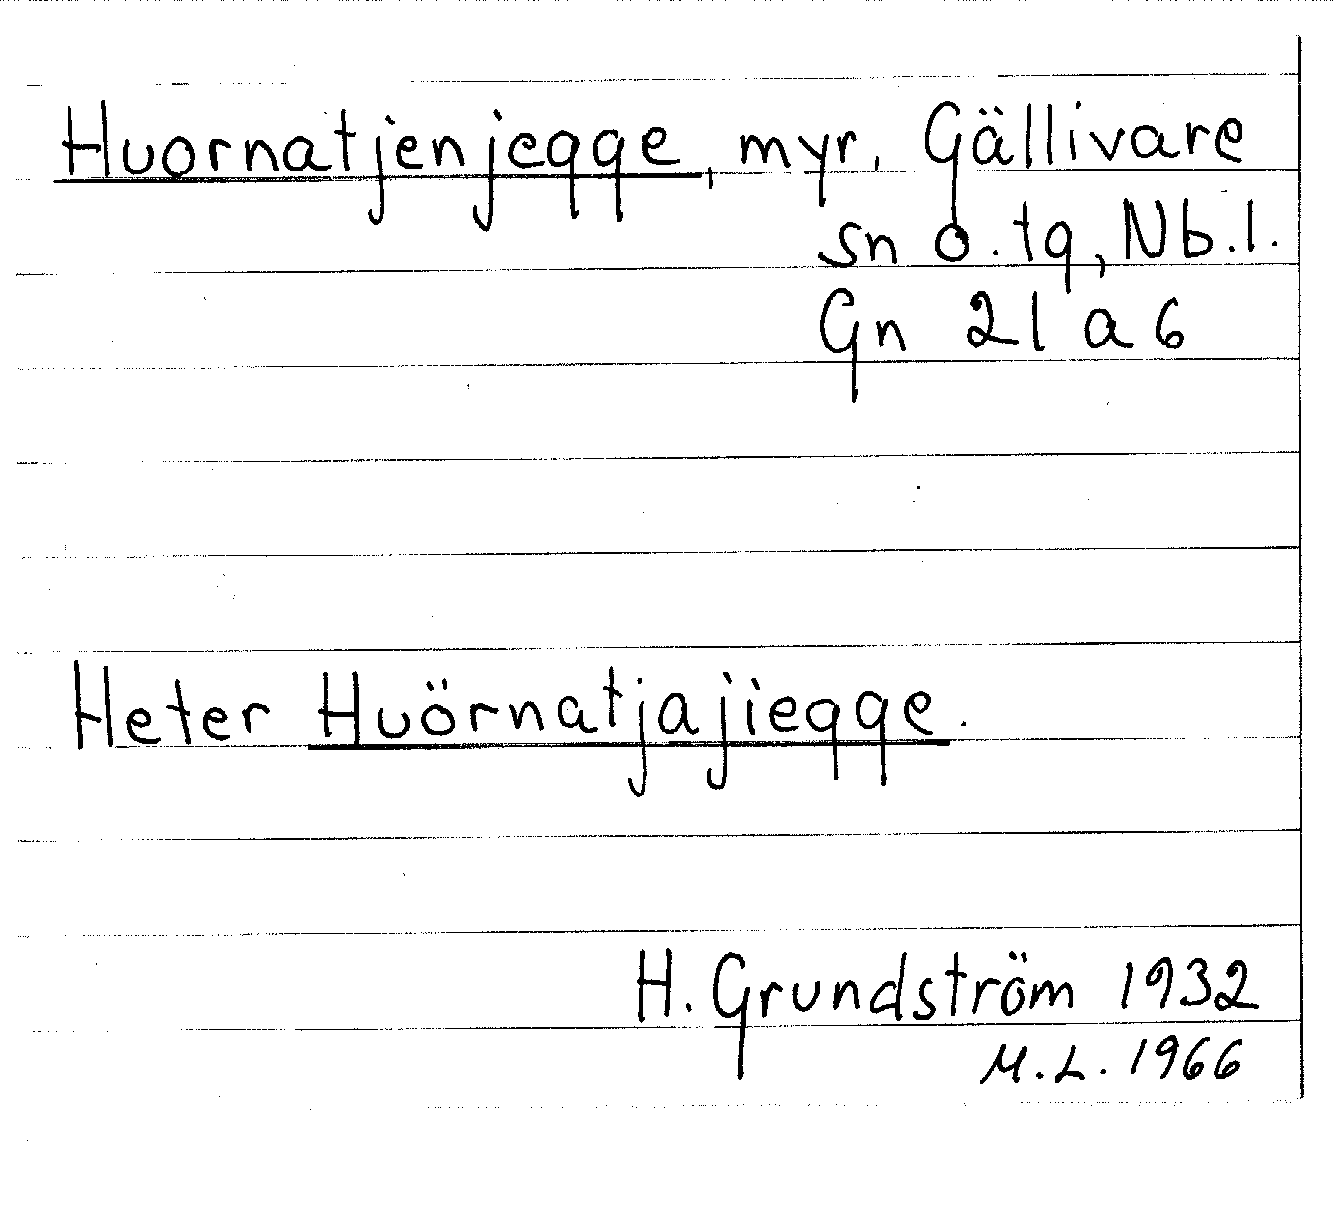 Huornatjenjegge, myr, Gällivare
sn o. tg, Nb. l.
Gn 21 a 6
Heter Huörnatjajiegge.
H. Grundström 1932
M. L. 1966